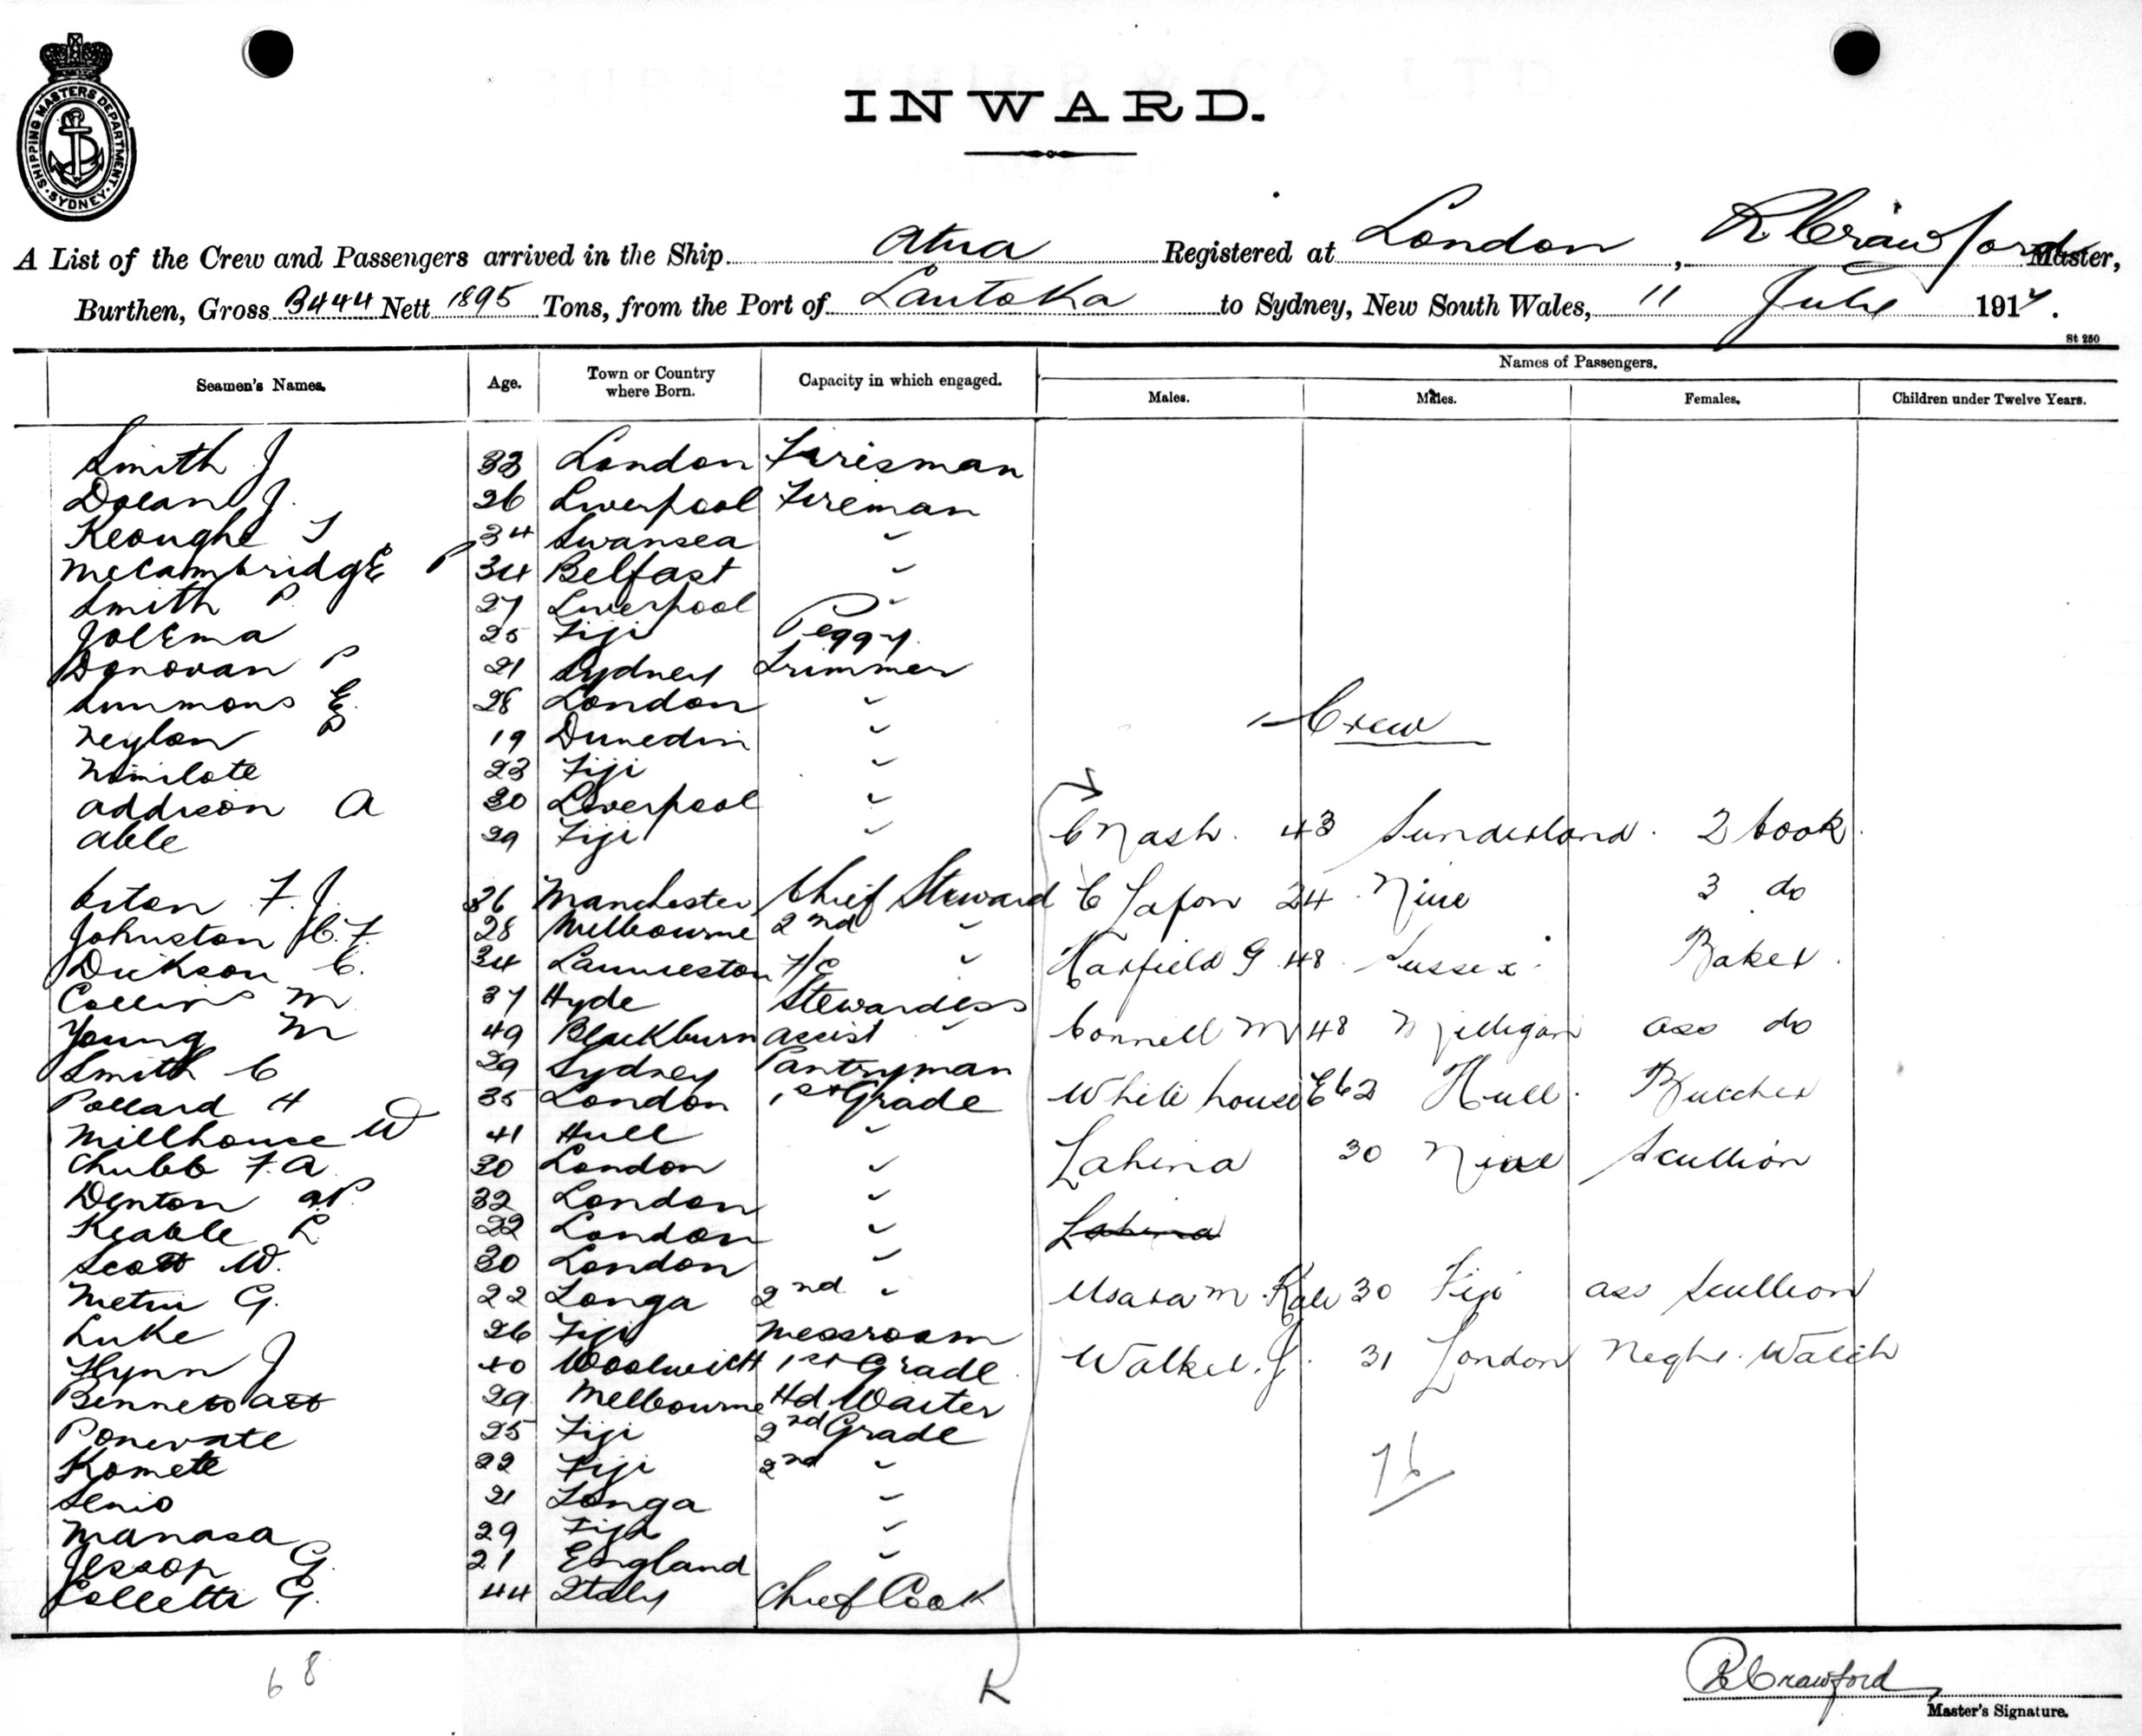 SHIPPING MASTERS DEPARTMENT. SYDNEY
INWARD.
A List of the Crew and Passengers arrived in the Ship Atua Registered at London, R Crawford Master,
Burthen, Gross 3444 Nett 1895 Tons, from the Port of Lautoka to Sydney, New South Wales, 11 July 1917.
St 250
Seamen's Names. Age. Town or Country where Born. Capacity in which engaged. Names of Passengers.
Males. Males. Females. Children under Twelve Years.
Smith J 33 London
Dolan J. 26 Liverpool Fireman
Keoughe T 34 Swansea "
McCambridgE P 34 Belfast "
Smith P. 27 Liverpool "
JolEma 25 Fiji Peggy.
Donovan P 21 Sydney Trimmer
Summons E. 28 London "
Neylon P 19 Dunedin "
Nimilote 23 Fiji "
Addison A 30 Liverpool "
Able 29 Fiji "
F. J. 36 Manchester Chief Steward
Johnston H. F. 28 Melbourne 2nd "
Dickson C. 34 Launceston F/C "
Collins M 37 Hyde Stewardess
Young M 49 Blackburn assist "
Smith C 29 Sydney Pantryman
Pollard H 35 London 1st Grade
Millhouse W 41 Hull "
Chubb F. A 30 London "
Denton A P. 32 London "
Keable L 22 London "
Scott W. 30 London "
G. 22 Tonga 2nd "
Luke 26 Fiji Messroom
Flynn J 40 Woolwich 1st Grade
Bennett 29 Melbourne Hd Waiter
Ponevate 25 Fiji 2nd Grade
Komete 22 Fiji 2nd "
Senio 21 Tonga "
Manasa 29 Fiji "
Jessop G. 21 England "
Colletti G. 44 Italy Chief Cook
Crew
C Nash. 43 Sunderland. 2 Cook.
C 24 Niue 3 do
Harfield G 48 Sussex Baker.
Connell M 48 Milligan ass do
Whitehouse E 62 Hull. Butcher
Lahina 30 Niue Scullion
Lahina
30 Fiji ass Scullion
Walker. J. 31 London Night. Watch
76
68
K
R Crawford
Master's Signature.